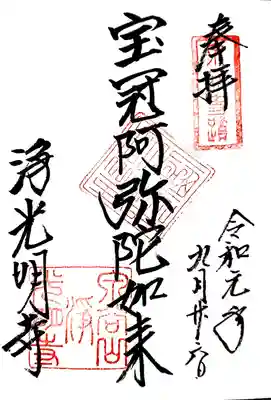 奉拝
令和元年
九月廿六日
宝冠阿弥陀如来
浄光明寺